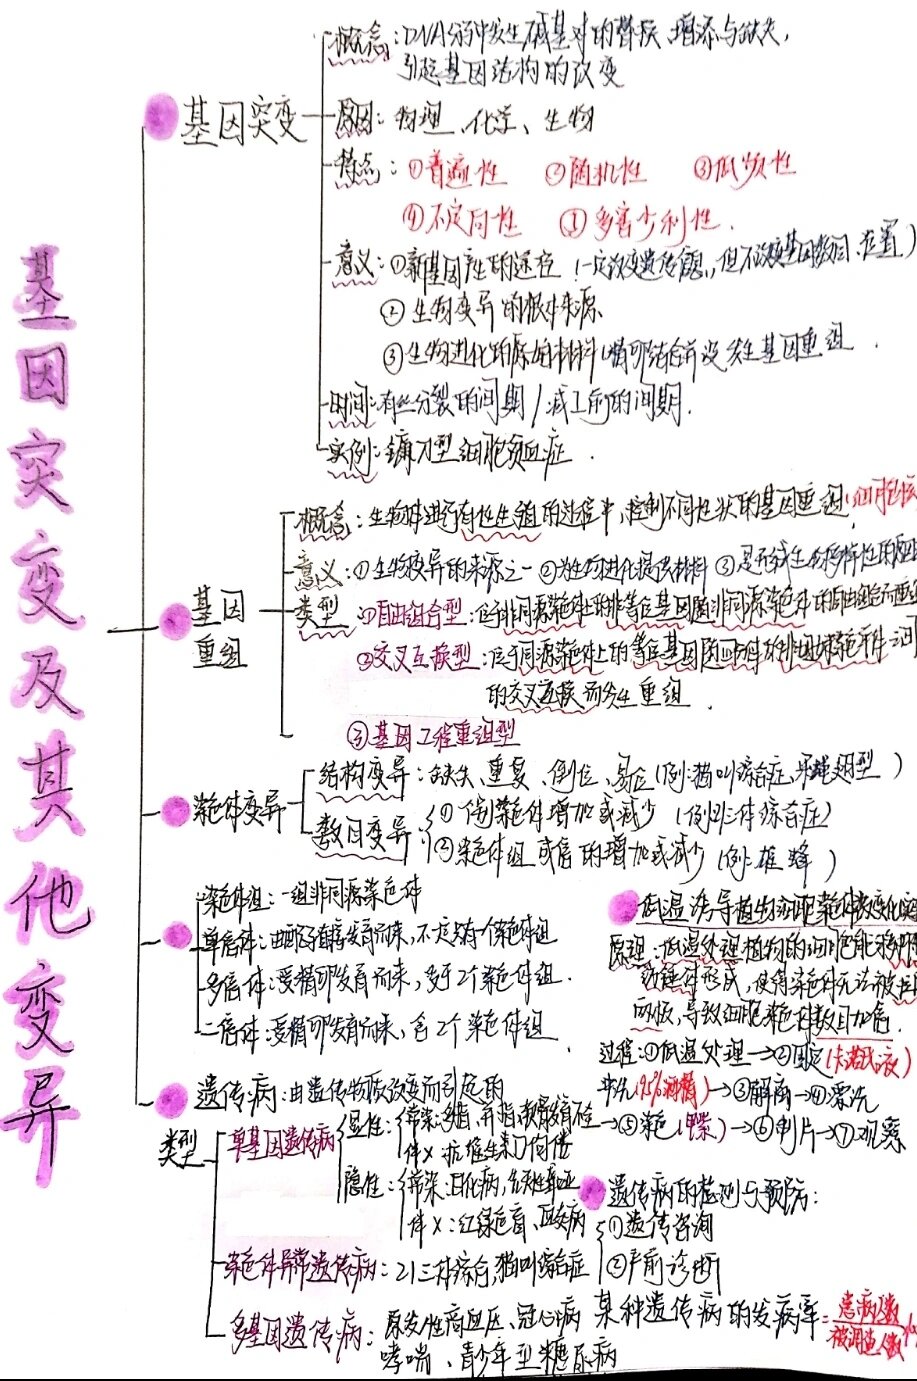 基因突变及其他变异
基因突变
概念：DNA分子中发生碱基对的替换、增添与缺失，
引起基因结构的改变
原因：物理、化学、生物
特点：①普遍性 ②随机性 ③低频性
④不定向性 ⑤多害少利性.
意义：①新基因产生的途径（一定改变遗传信息，但不改变基因数目、位置）
②生物变异的根本来源
③生物进化的原始材料
时间：有丝分裂的间期/减Ⅰ前的间期.
实例：镰刀型细胞贫血症.
基因
重组
概念：生物体进行有性生殖的过程中，控制不同性状的基因重组
意义：①生物变异的来源之一 ②为生物进化提供材料 ③是形成生物多样性的
类型 ①自由组合型：位于非同源染色体上的非等位基因随非同源染色体的自由组合而
②交叉互换型：位于同源染色体上的等位基因随四分体的非姐妹染色单体之间
的交叉互换而发生重组.
③基因工程重组型
染色体变异
结构变异：缺失、重复、倒位、易位（例：猫叫综合症、果蝇翅型）
数目变异：①个别染色体增加或减少（例：21三体综合症）
②染色体组成倍的增加或减少（例：雄蜂）
染色体组：一组非同源染色体
单倍体：由配子直接发育而来，不一定只有一个染色体组
多倍体：受精卵发育而来，多于2个染色体组.
二倍体：受精卵发育而来，含2个染色体组.
低温诱导植物细胞染色体数变化
原理：低温处理植物的细胞能抑制
纺锤体形成，使得染色体无法被拉
两极，导致细胞染色体数目加倍.
过程：①低温处理→②固定（卡诺氏液）
冲洗（95%酒精）→③解离→④漂洗
→⑤染色→⑥制片→⑦观察
遗传病：由遗传物质改变而引起的
类型
单基因遗传病
显性：常染：多指、并指、软骨发育不全
伴X：抗维生素D佝偻
隐性：常染：白化病，先天性聋哑
伴X：红绿色盲、血友病
染色体异常遗传病：21三体综合，猫叫综合症
多基因遗传病：原发性高血压、冠心病
哮喘、青少年型糖尿病
遗传病的检测与预防：
①遗传咨询
②产前诊断
某种遗传病的发病率=患病人数
被调查人数